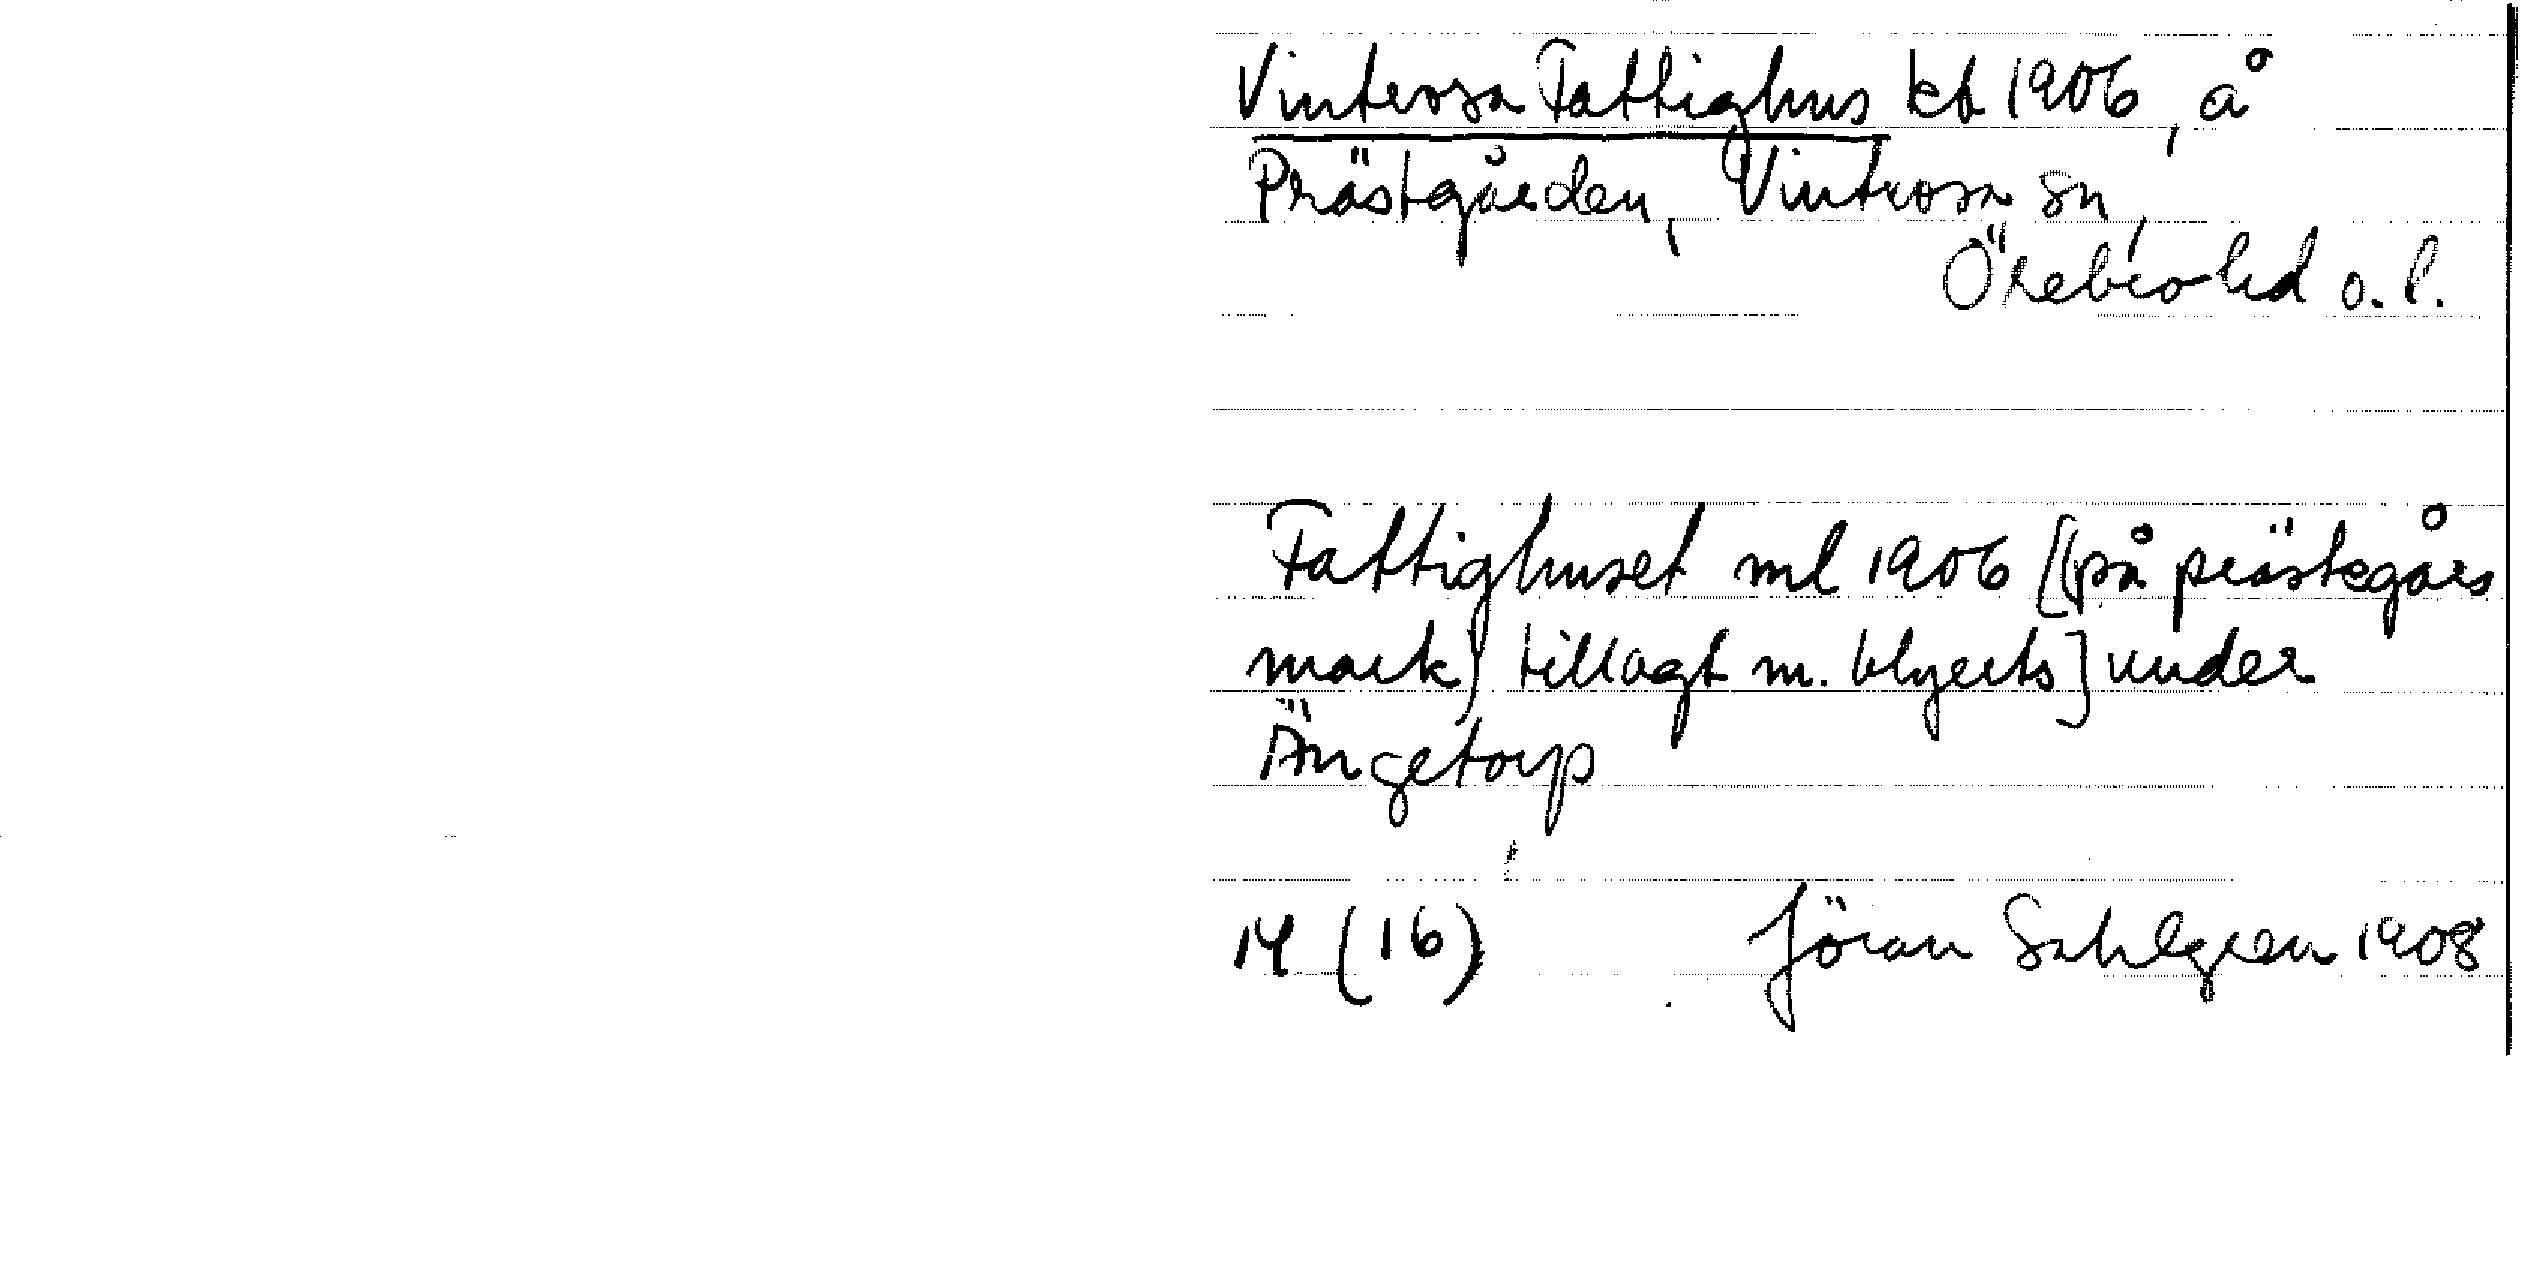 Vintrosa Fattighus kb 1906, å
Prästgården, Vintrosa sn,
Örebro hd o. l.
Fattighuset ml 1906 [(på prästegårs
mark) tillagt m. blyerts] under
Ängetorp
14 (16) Jöran Sahlgren 1908